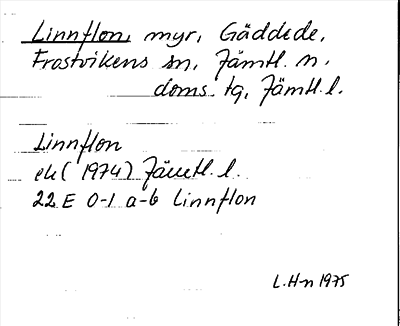 Linnflon, myr, Gäddede,
Frostvikens sn, Jämtl. n.
doms. tg, Jämtl. l.
Linnflon
ek (1974) Jämtl. l.
22 E 0-1 a-b Linnflon
L. H-n 1975